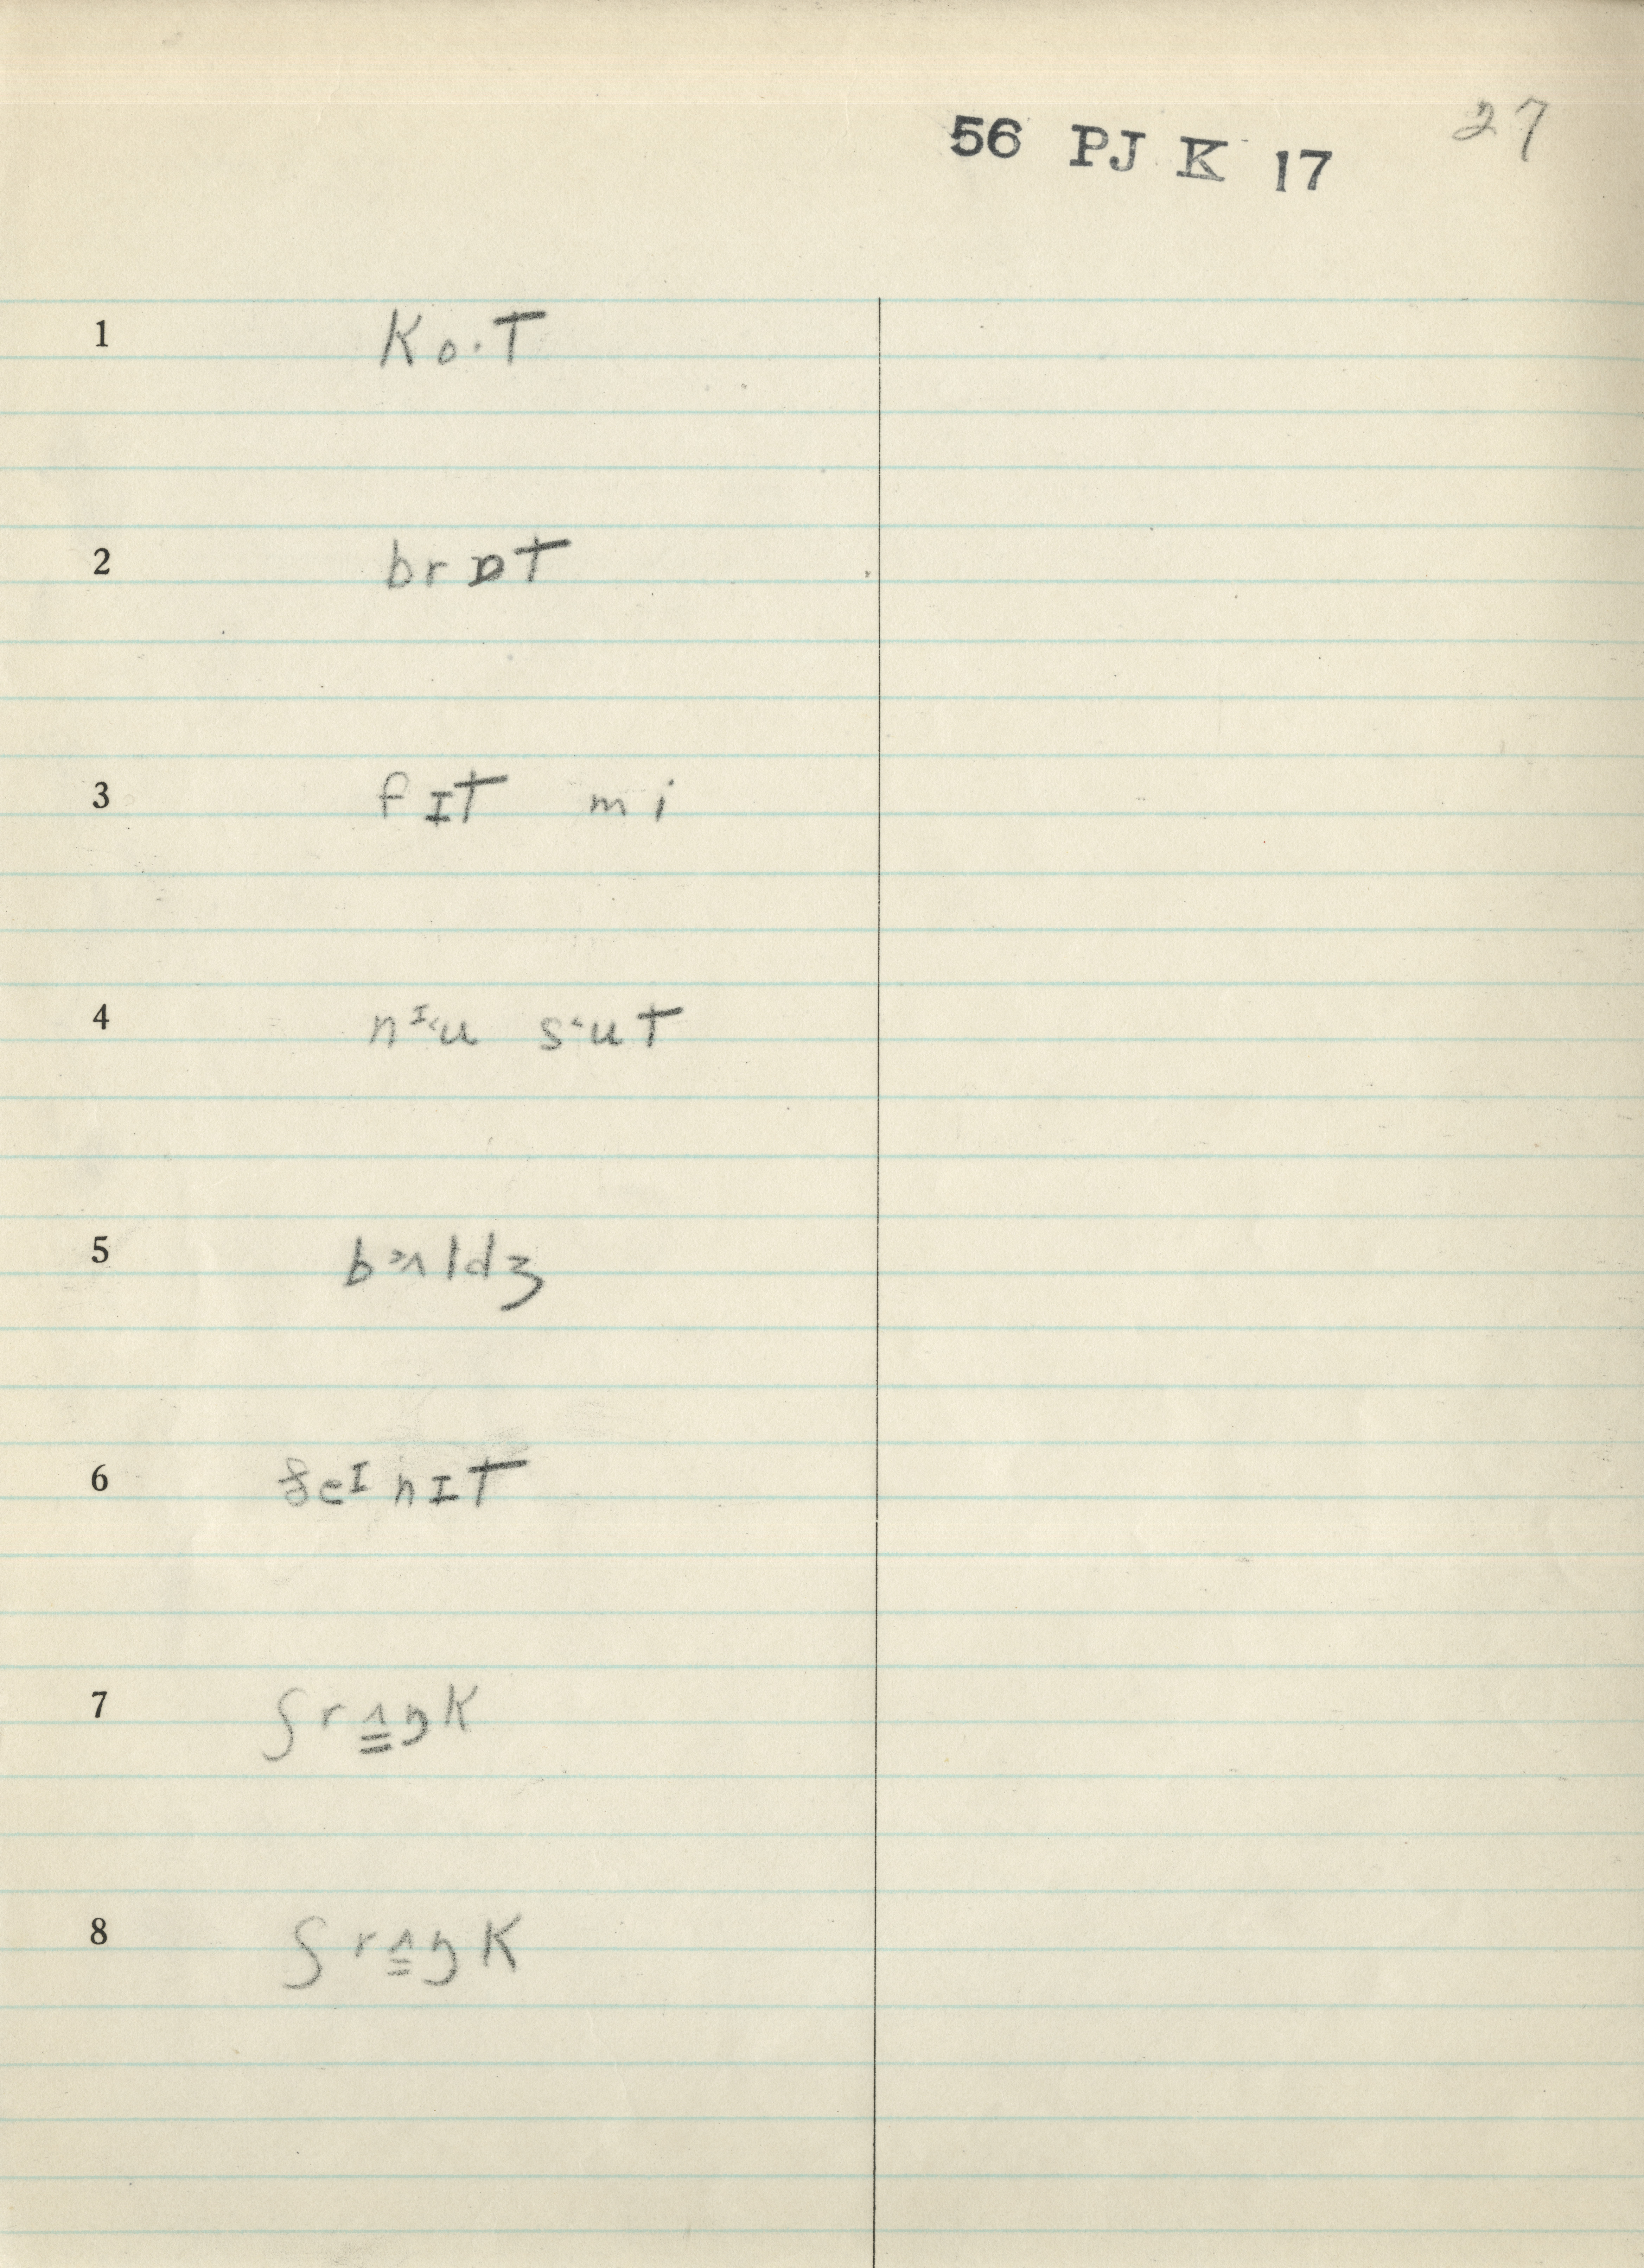 56 PJ K 17 27
1 ko·t
2 brɒt
3 fɪt mi
4 nᶦ˂u s˂ut
5 b˃ʌldʒ
6 eᶦnɪt
7 ʃrʌ̳ŋk
8 ʃrʌ̳ŋk